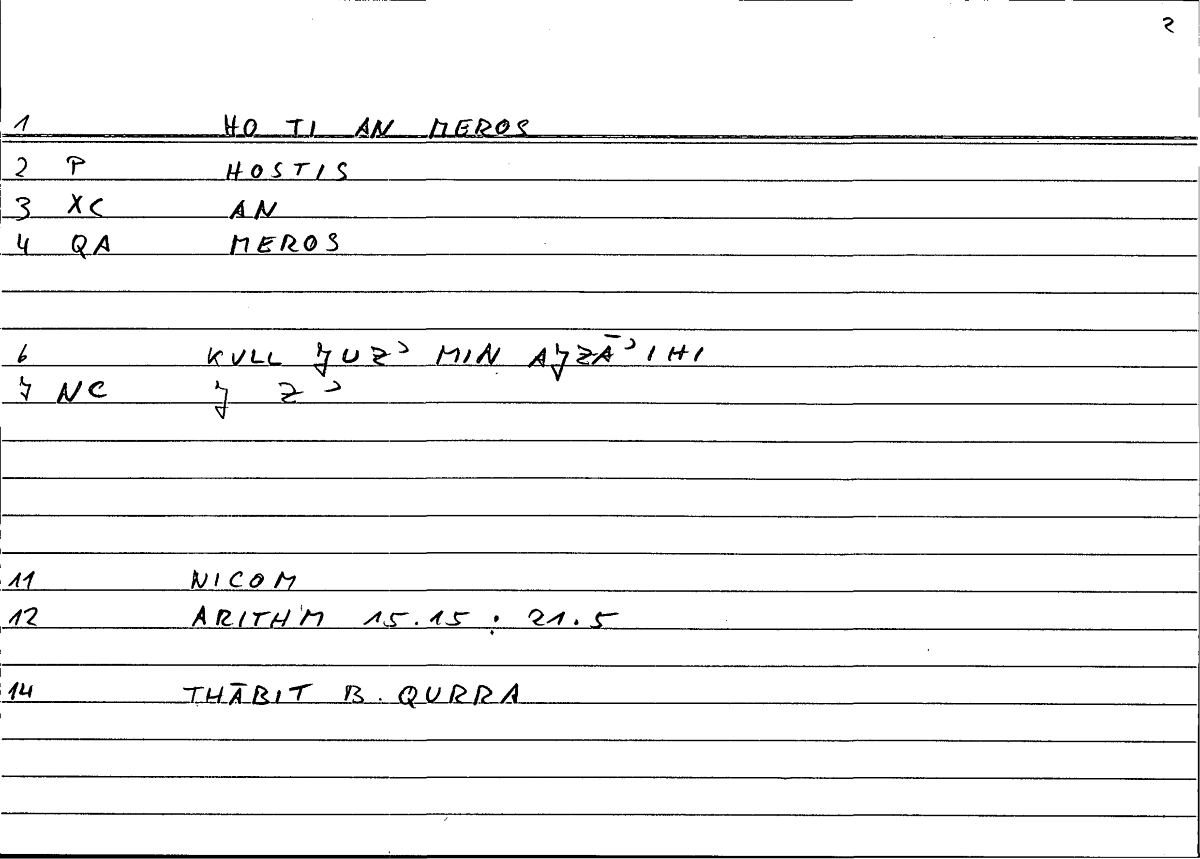 2
1 HO TI AN MEROS
2 P HOSTIS
3 XC AN
4 QA MEROS
6 KULL ǦUZʾ MIN AǦZĀʾIHI
7 NC Ǧ Zʾ
11 NICOM
12 ARITHM 15.15 : 21.5
14 THĀBIT B. QURRA